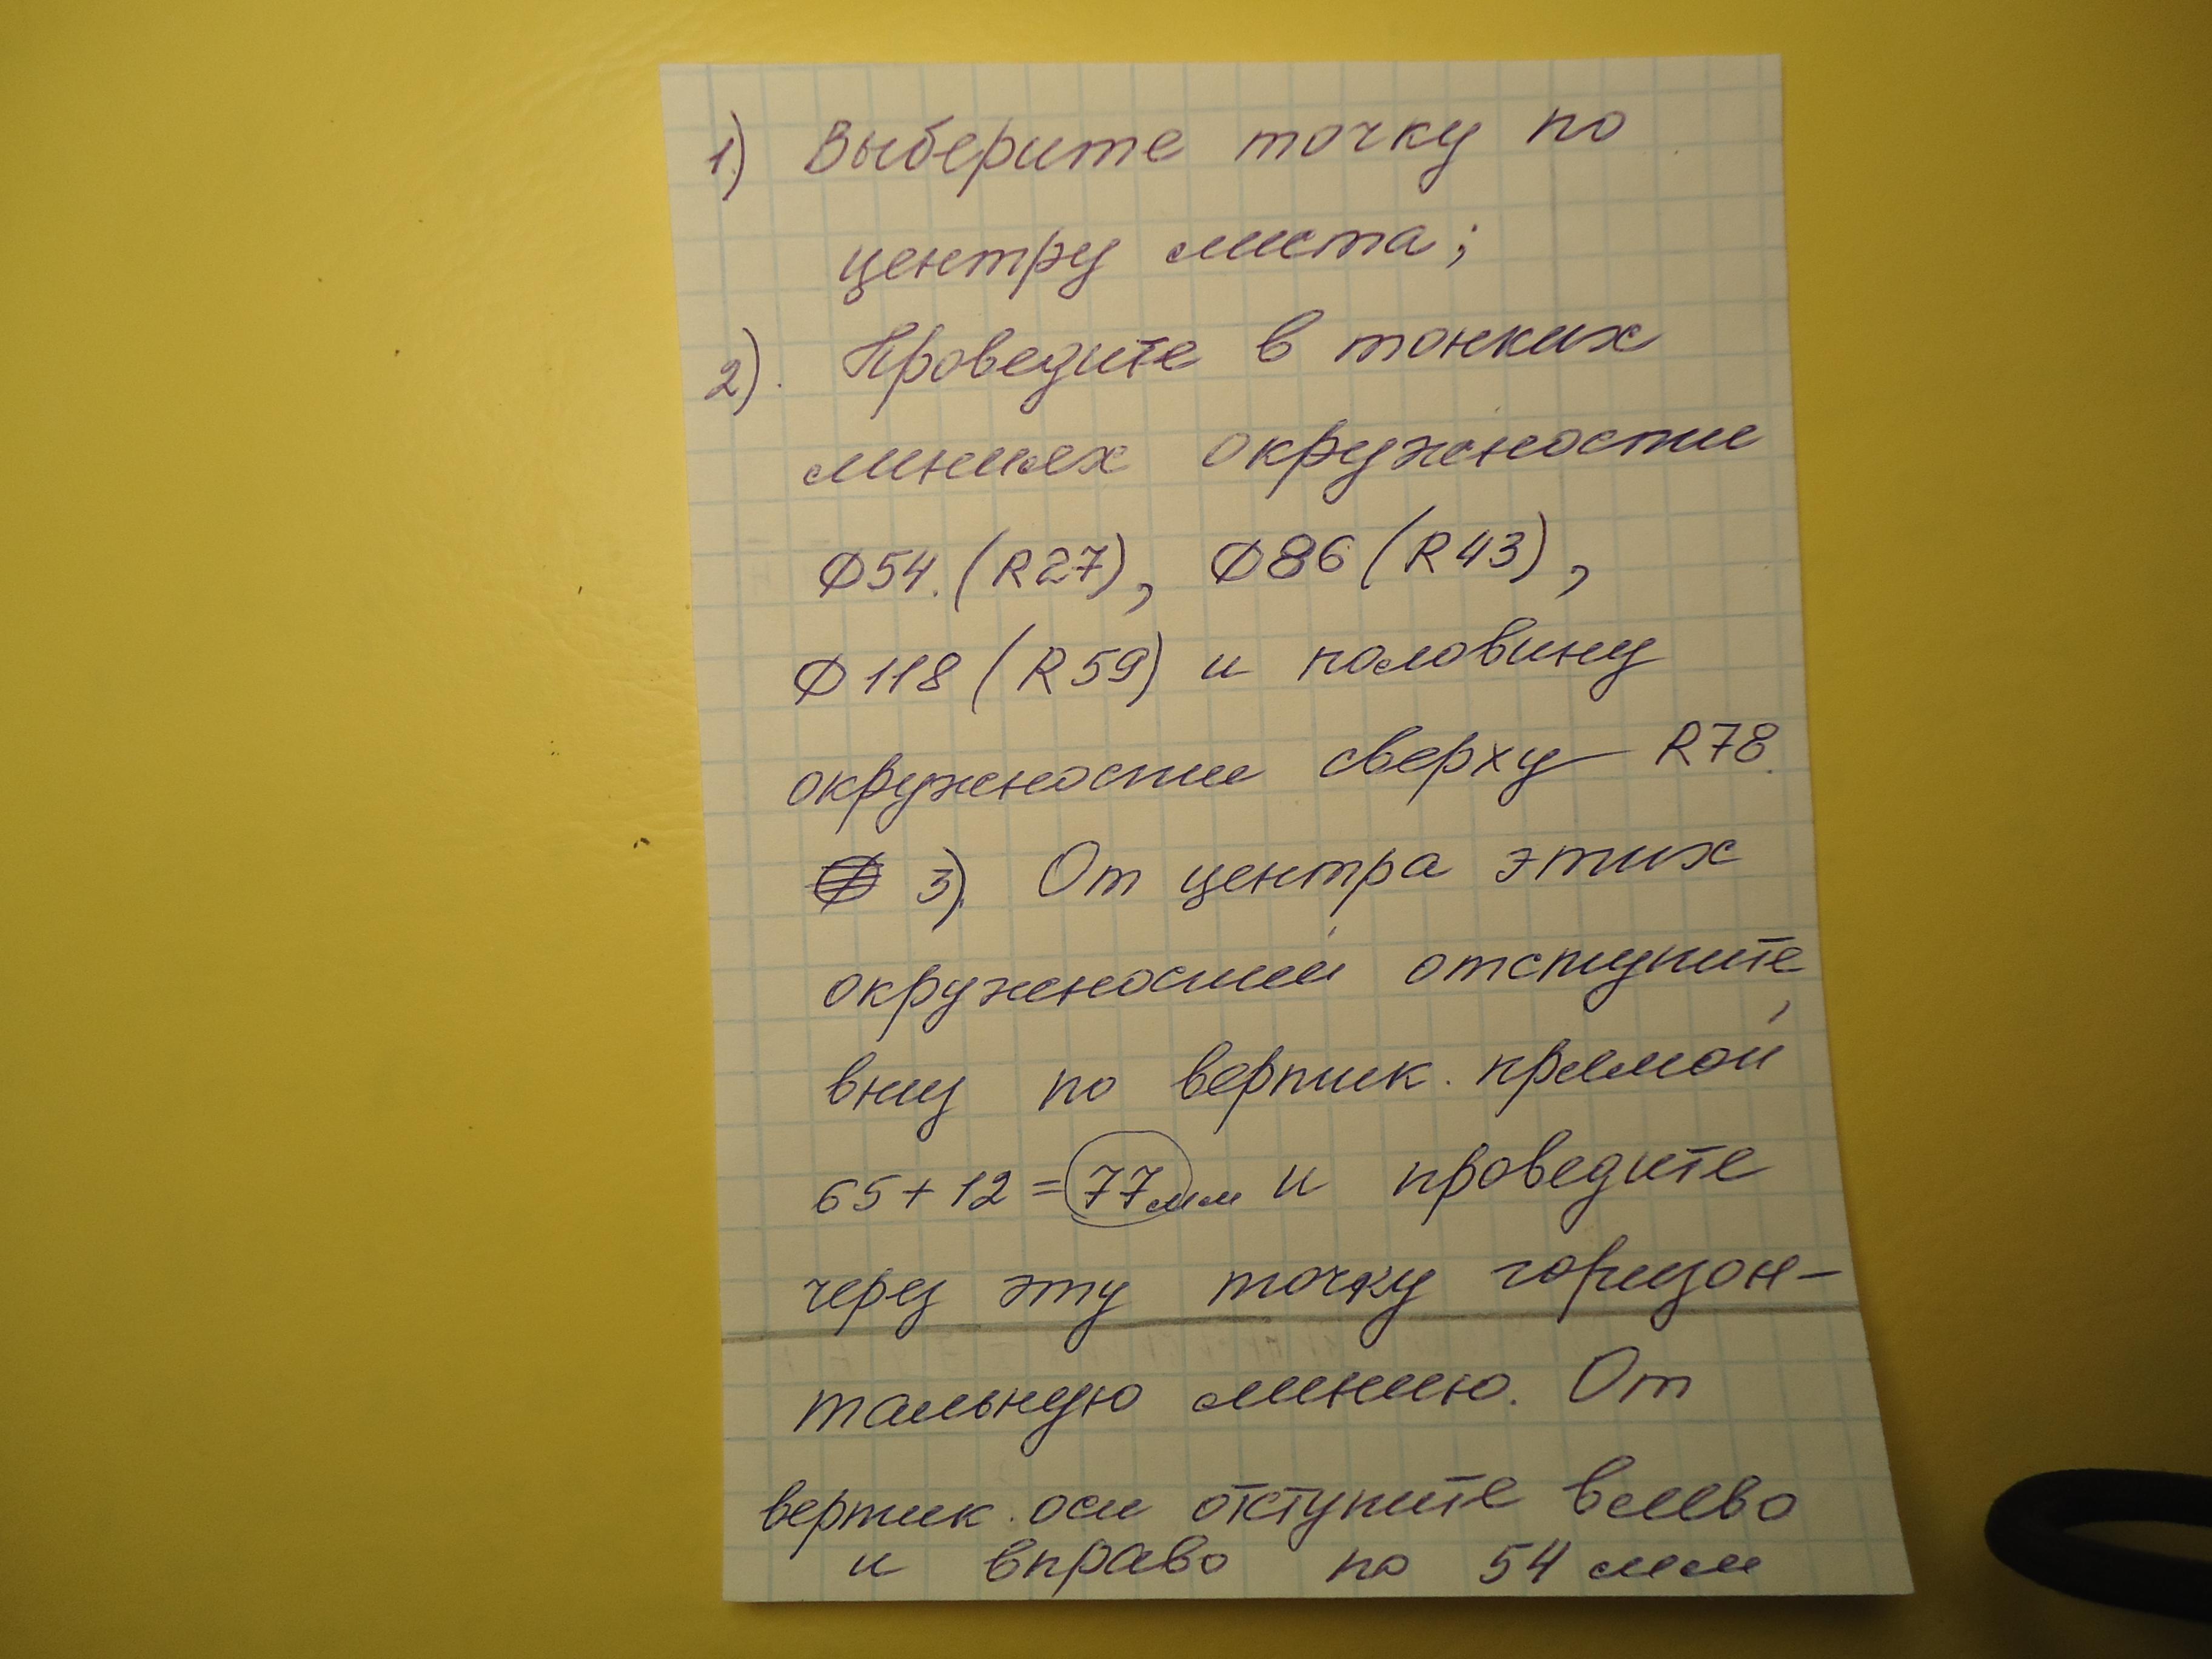 1) Выберите точку по
центру листа;
2). Проведите в тонких
линиях окружности
Ø54. (R27), Ø86 (R43),
Ø118 (R59) и половину
окружности сверху R78.
3). От центра этих
окружностей отступите
вниз по вертик. прямой
65+12=77мм и проведите
через эту точку горизон-
тальную линию. От
вертик. оси отступите влево
и вправо по 54 мм